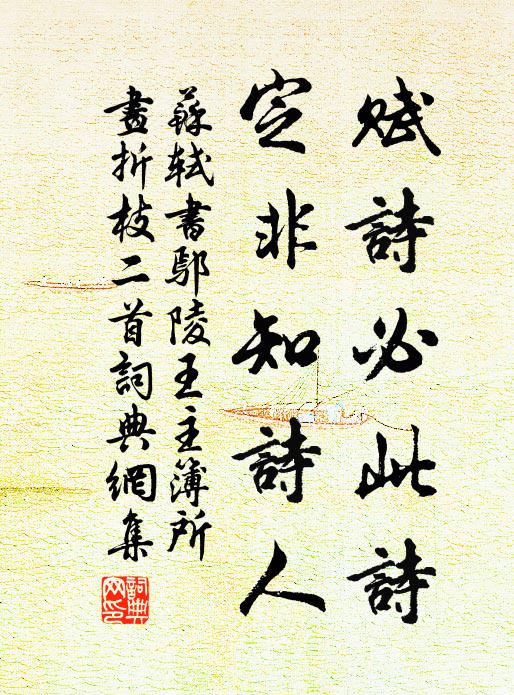 賦詩必此詩
定非知詩人
蘇軾書鄢陵王主簿所
畫折枝二首詞典網集
詞典
网印